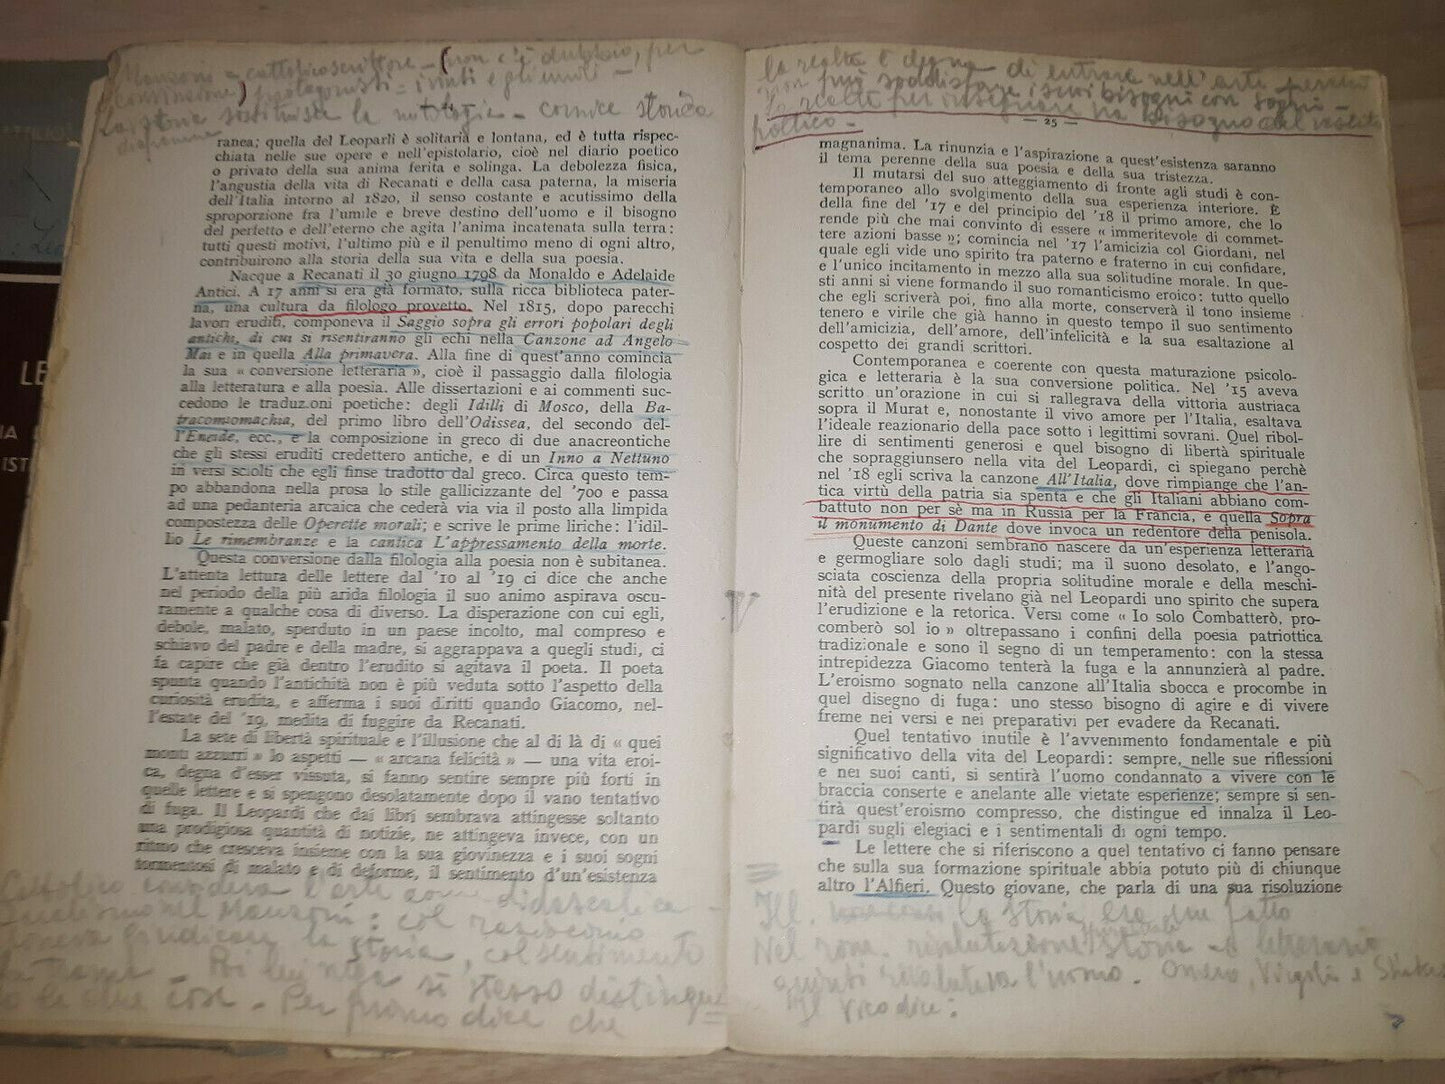 Manzoni cattolico scrittore - (non c'è dubbio, per
convinzione) protagonisti = i vinti e gli umili -
La storia sostituisce la mitologia - cornice storica
ranea; quella del Leopardi è solitaria e lontana, ed è tutta rispec-
chiata nelle sue opere e nell'epistolario, cioè nel diario poetico
o privato della sua anima ferita e solinga. La debolezza fisica,
l'angustia della vita di Recanati e della casa paterna, la miseria
dell'Italia intorno al 1820, il senso costante e acutissimo della
sproporzione fra l'umile e breve destino dell'uomo e il bisogno
del perfetto e dell'eterno che agita l'anima incatenata sulla terra:
tutti questi motivi, l'ultimo più e il penultimo meno di ogni altro,
contribuirono alla storia della sua vita e della sua poesia.
Nacque a Recanati il 30 giugno 1798 da Monaldo e Adelaide
Antici. A 17 anni si era già formato, sulla ricca biblioteca pater-
na, una cultura da filologo provetto. Nel 1815, dopo parecchi
lavori eruditi, componeva il Saggio sopra gli errori popolari degli
antichi, di cui si risentiranno gli echi nella Canzone ad Angelo
Mai e in quella Alla primavera. Alla fine di quest'anno comincia
la sua « conversione letteraria », cioè il passaggio dalla filologia
alla letteratura e alla poesia. Alle dissertazioni e ai commenti suc-
cedono le traduzioni poetiche: degli Idilli di Mosco, della Ba-
tracomiomachia, del primo libro dell'Odissea, del secondo del-
l'Eneide, ecc., e la composizione in greco di due anacreontiche
che gli stessi eruditi credettero antiche, e di un Inno a Nettuno
in versi sciolti che egli finse tradotto dal greco. Circa questo tem-
po abbandona nella prosa lo stile gallicizzante del '700 e passa
ad una pedanteria arcaica che cederà via via il posto alla limpida
compostezza delle Operette morali; e scrive le prime liriche: l'idil-
lio Le rimembranze e la cantica L'appressamento della morte.
Questa conversione dalla filologia alla poesia non è subitanea.
L'attenta lettura delle lettere dal '10 al '19 ci dice che anche
nel periodo della più arida filologia il suo animo aspirava oscu-
ramente a qualche cosa di diverso. La disperazione con cui egli,
debole, malato, sperduto in un paese incolto, mal compreso e
schiavo del padre e della madre, si aggrappava a quegli studi, ci
fa capire che già dentro l'erudito si agitava il poeta. Il poeta
spunta quando l'antichità non è più veduta sotto l'aspetto della
curiosità erudita, e afferma i suoi diritti quando Giacomo, nel-
l'estate del '19, medita di fuggire da Recanati.
La sete di libertà spirituale e l'illusione che al di là di « quei
monti azzurri » lo aspetti — « arcana felicità » — una vita eroi-
ca, degna d'esser vissuta, si fanno sentire sempre più forti in
quelle lettere e si spengono desolatamente dopo il vano tentativo
di fuga. Il Leopardi che dai libri sembrava attingesse soltanto
una prodigiosa quantità di notizie, ne attingeva invece, con un
ritmo che cresceva insieme con la sua giovinezza e i suoi sogni
tormentosi di malato e di deforme, il sentimento d'un'esistenza
Cattolico considera l'arte come didascalica -
Manzoni: col raziocinio
giudicare la storia, col sentimento
- Poi lui nega si stesso distingue
le due cose - Per primo dice che
la realtà è degna di entrare nell'arte perché
non può soddisfare i suoi bisogni con sogni -
poetico -
— 25 —
magnanima. La rinunzia e l'aspirazione a quest'esistenza saranno
il tema perenne della sua poesia e della sua tristezza.
Il mutarsi del suo atteggiamento di fronte agli studi è con-
temporaneo allo svolgimento della sua esperienza interiore. È
della fine del '17 e del principio del '18 il primo amore, che lo
rende più che mai convinto di essere « immeritevole di commet-
tere azioni basse »; comincia nel '17 l'amicizia col Giordani, nel
quale egli vide uno spirito tra paterno e fraterno in cui confidare,
e l'unico incitamento in mezzo alla sua solitudine morale. In que-
sti anni si viene formando il suo romanticismo eroico: tutto quello
che egli scriverà poi, fino alla morte, conserverà il tono insieme
tenero e virile che già hanno in questo tempo il suo sentimento
dell'amicizia, dell'amore, dell'infelicità e la sua esaltazione al
cospetto dei grandi scrittori.
Contemporanea e coerente con questa maturazione psicolo-
gica e letteraria è la sua conversione politica. Nel '15 aveva
scritto un'orazione in cui si rallegrava della vittoria austriaca
sopra il Murat e, nonostante il vivo amore per l'Italia, esaltava
l'ideale reazionario della pace sotto i legittimi sovrani. Quel ribol-
lire di sentimenti generosi e quel bisogno di libertà spirituale
che sopraggiunsero nella vita del Leopardi, ci spiegano perchè
nel '18 egli scriva la canzone All'Italia, dove rimpiange che l'an-
tica virtù della patria sia spenta e che gli Italiani abbiano com-
battuto non per sè ma in Russia per la Francia, e quella Sopra
il monumento di Dante dove invoca un redentore della penisola.
Queste canzoni sembrano nascere da un'esperienza letteraria
e germogliare solo dagli studi; ma il suono desolato, e l'ango-
sciata coscienza della propria solitudine morale e della meschi-
nità del presente rivelano già nel Leopardi uno spirito che supera
l'erudizione e la retorica. Versi come « Io solo Combatterò, pro-
comberò sol io » oltrepassano i confini della poesia patriottica
tradizionale e sono il segno di un temperamento: con la stessa
intrepidezza Giacomo tenterà la fuga e la annunzierà al padre.
L'eroismo sognato nella canzone all'Italia sbocca e procombe in
quel disegno di fuga: uno stesso bisogno di agire e di vivere
freme nei versi e nei preparativi per evadere da Recanati.
Quel tentativo inutile è l'avvenimento fondamentale e più
significativo della vita del Leopardi: sempre, nelle sue riflessioni
e nei suoi canti, si sentirà l'uomo condannato a vivere con le
braccia conserte e anelante alle vietate esperienze; sempre si sen-
tirà quest'eroismo compresso, che distingue ed innalza il Leo-
pardi sugli elegiaci e i sentimentali di ogni tempo.
Le lettere che si riferiscono a quel tentativo ci fanno pensare
che sulla sua formazione spirituale abbia potuto più di chiunque
altro l'Alfieri. Questo giovane, che parla di una sua risoluzione
Ill. la storia era un fatto
Nel rom. storia - letterario
quindi l'uomo. Omero, Virgilio e Shakes
Il Vico dice: